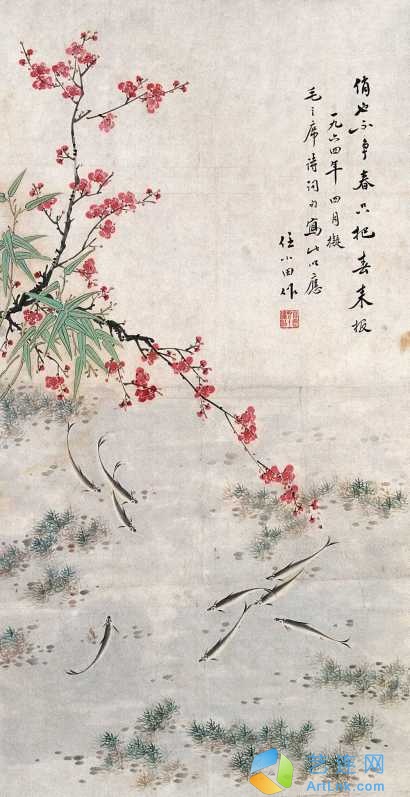 俏也不争春只把春来报
一九六四年四月拟
毛主席诗词句写此以应
任小田作
艺连网
ArtLnk.com